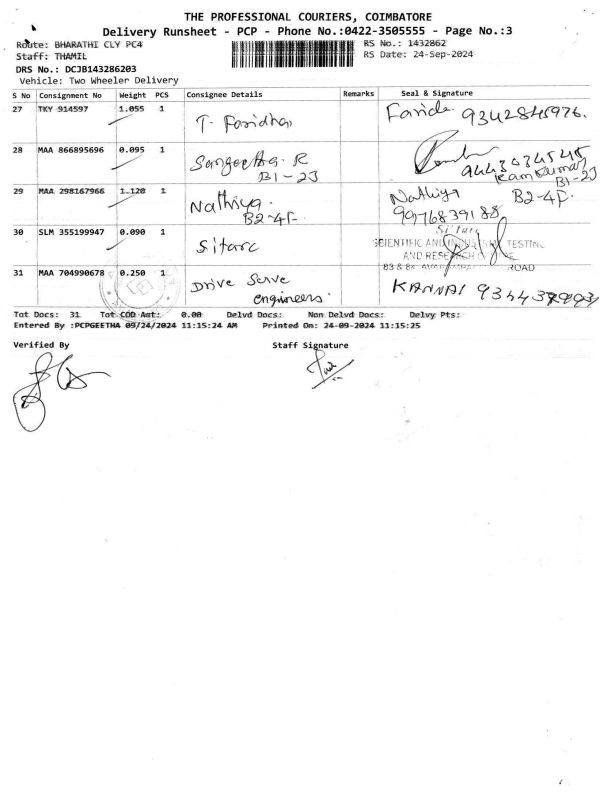 THE PROFESSIONAL COURIERS, COIMBATORE
Delivery Runsheet - PCP - Phone No.:0422-3505555 - Page No.:3
Route: BHARATHI CLY PC4
RS No.: 1432862
Staff: THAMIL
RS Date: 24-Sep-2024
DRS No.: DCJB143286203
Vehicle: Two Wheeler Delivery
S No Consignment No Weight PCS Consignee Details Remarks Seal & Signature
27 TKY 914597 1.055 1 T. Faridha Farida 9342845976.
28 MAA 866895696 0.095 1 Sangeetha. R
B1-2J
B1-2J
29 MAA 298167966 1.120 1 Nathiya. Nathiya B2-4F.
B2-4F. 9976839188
30 SLM 355199947 0.090 1 Sitarc Si'Tarc
SCIENTIFIC AND INDUSTRIAL TESTING
AND RESEARCH CENTRE
83 & 84 ROAD
31 MAA 704990678 0.250 1 Drive Serve
engineers. KANNAI
Tot Docs: 31 Tot COD Amt: 0.00 Delvd Docs: Non Delvd Docs: Delvy Pts:
Entered By :PCPGEETHA 09/24/2024 11:15:24 AM Printed On: 24-09-2024 11:15:25
Verified By Staff Signature